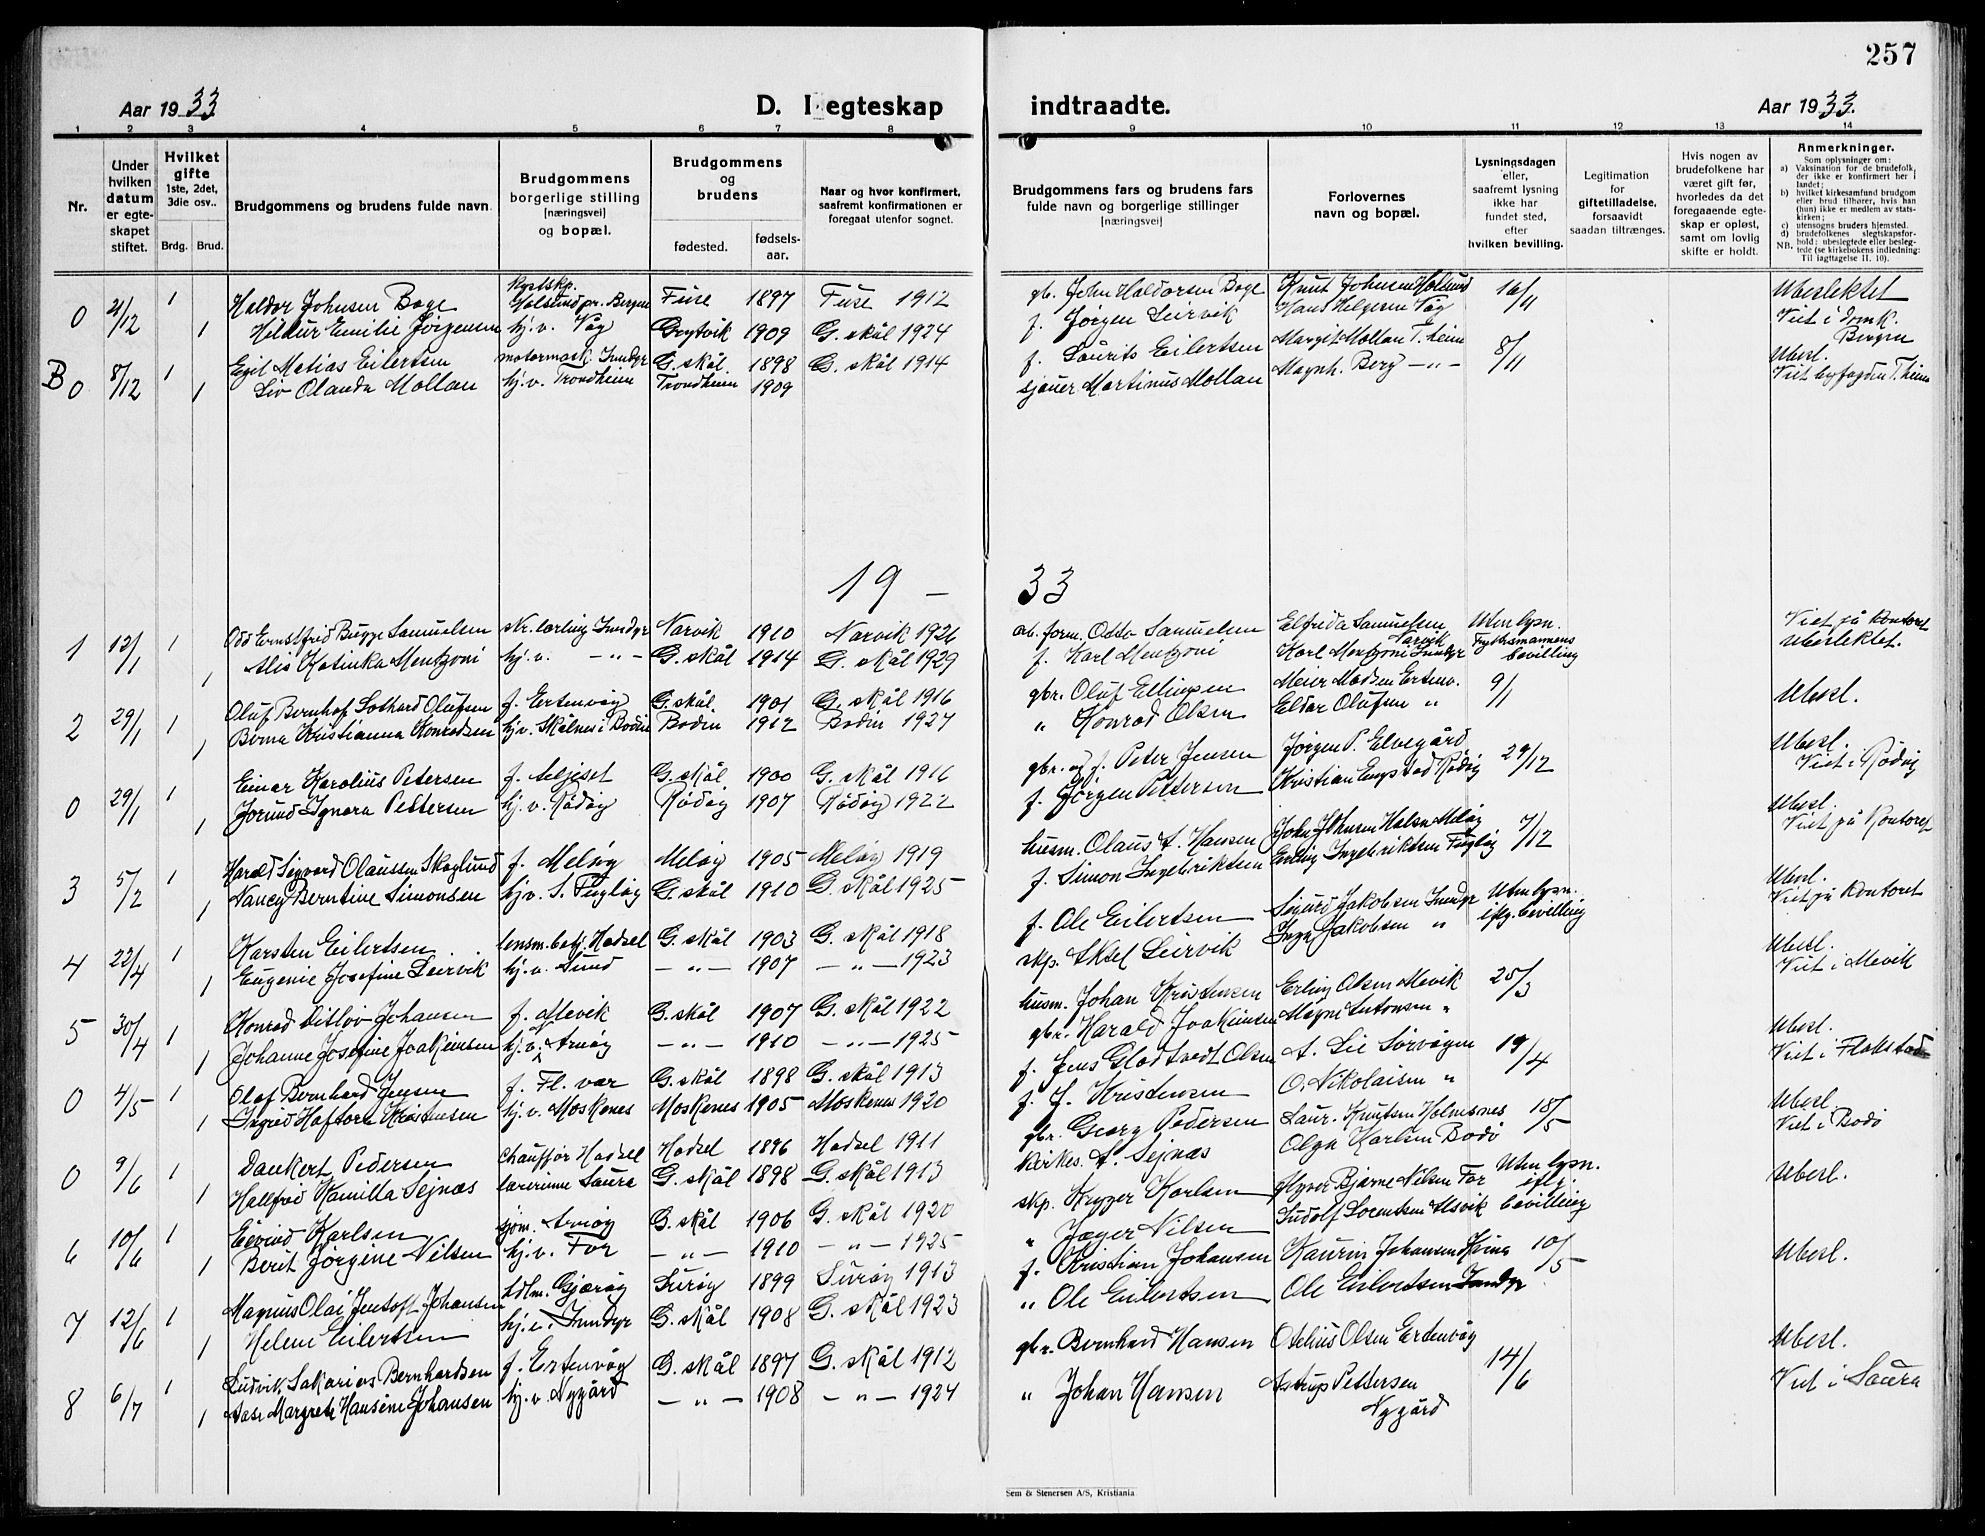 257
Aar 1933
D. I egteskap indtraadte.
Aar 1933.
1 2 3 4 5 6 7 8 9 10 11 12 13 14
Nr.
Under hvilken datum er egte- skapet stiftet.
Hvilket gifte 1ste, 2det, 3die osv..
Brdg. Brud.
Brudgommens og brudens fulde navn.
Brudgommens borgerlige stilling [næringsvei] og bopæl.
Brudgommens og brudens
fødested. fødsels- aar.
Naar og hvor konfirmert, saafremt konfirmationen er foregaat utenfor sognet.
Brudgommens fars og brudens fars fulde navn og borgerlige stillinger [næringsvei]
Forlovernes navn og bopæl.
Lysningsdagen eller, saafremt lysning ikke har fundet sted, efter hvilken bevilling.
Legitimation for giftetilladelse, forsaavidt saadan tiltrænges.
Hvis nogen av brudefolkene har været gift før, hvorledes da det foregaaende egte- skap er opløst, samt om lovlig skifte er holdt.
Anmerkninger.
Som oplysninger om:
a) Vaksination for de brudefolk, der ikke er konfirmert her i landet;
b) hvilket kirkesamfund brudgom eller brud tilhører, hvis han (hun) ikke er medlem av stats- kirken;
c) utensogns bruders hjemsted.
d) brudefolkenes slegtskapsfor- hold: ubeslegtede eller besleg- tede (se kirkebokens indledning:
NB. Til iagttagelse II. 10).
0 21/12 1 Haldor Johnsen Boge Kystskp. Holsund pr. Bergen Fuse 1897 Fuse 1912 gb. John Haldorsen Boge Knut Johnsen Holsund 16/11 Ubeslektet
1 Hildur Emilie Jørgensen hj. v. Våg Grytvik 1909 G. skål 1924 f. Jørgen Leirvik Hans Helgesen Våg Viet i Domk. Bergen
B 0 8/12 1 Egil Matias Eilertsen motormask. Inndyr G. skål 1898 G. skål 1914 f. Laurits Eilertsen Margit Mollan T.heim 8/11 Ubesl.
1 Liv Olanda Mollan hj. v. Trondheim Trondheim 1909 sjauer Martinus Mollan Magnh. Berg - " - Viet byfogden T.heim
19 - 33
1 12/1 1 Odd Ernstfrid Bugge Samuelsen skr. lærling Inndyr Narvik 1910 Narvik 1926 arb. form. Otto Samuelsen Elfrida Samuelsen Narvik Uten lysn. Viet på kontoret
1 Alis Katinka Mentzoni hj. v. - " - G. skål 1914 G. skål 1929 f. Karl Mentzoni Karl Mentzoni Inndyr Fylkesmannens bevilling Ubeslektet.
2 29/1 1 Oluf Bernhof Lothard Olufsen f. Ertenvåg G. skål 1901 G. skål 1916 gbr. Oluf Ellingsen Meier Madsen Ertenv. 9/1 Ubesl.
1 Berna Kristianna Konradsen hj. v. Skålnes i Bodin Bodin 1912 Bodin 1927 " Konrad Olsen Eldar Olufsen "
0 29/1 1 Einar Karolius Petersen f. Seljeset G. skål 1900 G. skål 1916 gbr. og f. Peter Jensen Jørgen P. Elvegård 29/12 Ubesl.
1 Jorund Ignora Pettersen hj. v. Rødøy Rødøy 1907 Rødøy 1922 f. Jørgen Pettersen Kristian Engstad Rødøy Viet i Rødøy
3 5/2 1 Harald Sigvard Olaussen Skoglund f. Meløy Meløy 1905 Meløy 1919 husm. Olaus A. Hansen John Johnsen Halsa Meløy 7/12 Ubesl. Viet på Kontoret
1 Nancy Berntine Simonsen hj. v. S. Fugløy G. skål 1910 G. skål 1925 f. Simon Ingebriktsen Erling Ingebriktsen Fugløy
4 22/4 1 Karsten Eilertsen lensm. betj. Hadsel G. skål 1903 G. skål 1918 f. Ole Eilertsen Sigurd Jakobsen Inndyr Uten lysn. Ubesl.
1 Eugenie Josefine Leirvik hj. v. Sund - " - 1907 - " - 1923 skp. Aksel Leirvik Inga Jakobsen " iflg. bevilling Viet på Kontoret
5 30/4 1 Konrad Ditlov Johansen f. Mevik G. skål 1907 G. skål 1922 husm. Johan Kristensen Erling Olsen Mevik 25/3 Ubesl.
1 Johanne Josefine Joakimsen hj. v. Arnøy - " - 1910 - " - 1925 gbr. Harald Joakimsen Magni Antonsen " Viet i Mevik
0 4/5 1 Olaf Bernhard Jensen f. Fl. vær G. skål 1898 G. skål 1913 f. Jens Gladtvedt Olsen A. Lie Sørvågen 19/4 Ubesl.
1 Ingrid Haftora Kristensen hj. v. Moskenes Moskenes 1905 Moskenes 1920 f. J. Kristensen O. Nikolaisen " Viet i Flakstad
0 9/6 1 Dankert Pedersen chauffør Hadsel Hadsel 1896 Hadsel 1911 gbr. Georg Pedersen Laur. Knutsen Holmesnes 18/5 Ubesl.
1 Hallfrid Kamilla Sejnæs lærerinne Saura G. skål 1898 G. skål 1913 kirkes. A. Sejnæs Olga Karlsen Bodø Viet i Bodø
6 10/6 1 Eivind Karlsen sjøm. Arnøy G. skål 1906 G. skål 1920 skp. Krygger Karlsen Bjarne Nilsen For Uten lysn. Ubesl.
1 Berit Jørgine Nilsen hj. v. For - " - 1910 - " - 1925 " Jæger Nilsen Ludolf Lorentsen Alsvik iflg. bevilling
7 12/6 1 Magnus Olai Jentoft Johansen hdlm. Gjærøy Lurøy 1899 Lurøy 1913 f. Kristian Johansen Kaurin Johansen 10/5 Ubesl.
1 Helene Eilertsen hj. v. Inndyr G. skål 1908 G. skål 1923 " Ole Eilertsen Ole Eilertsen Inndyr
8 6/7 1 Ludvik Sakarias Bernhardsen f. Ertenvåg G. skål 1897 G. skål 1912 gbr. Bernhard Hansen Otelius Olsen Ertenvåg 14/6 Ubesl.
1 Aase Margrete Hansine Johansen hj. v. Nygård - " - 1908 - " - 1924 " Johan Hansen Astrup Pettersen Nygård Viet i Saura
Sem & Stenersen A/S, Kristiania